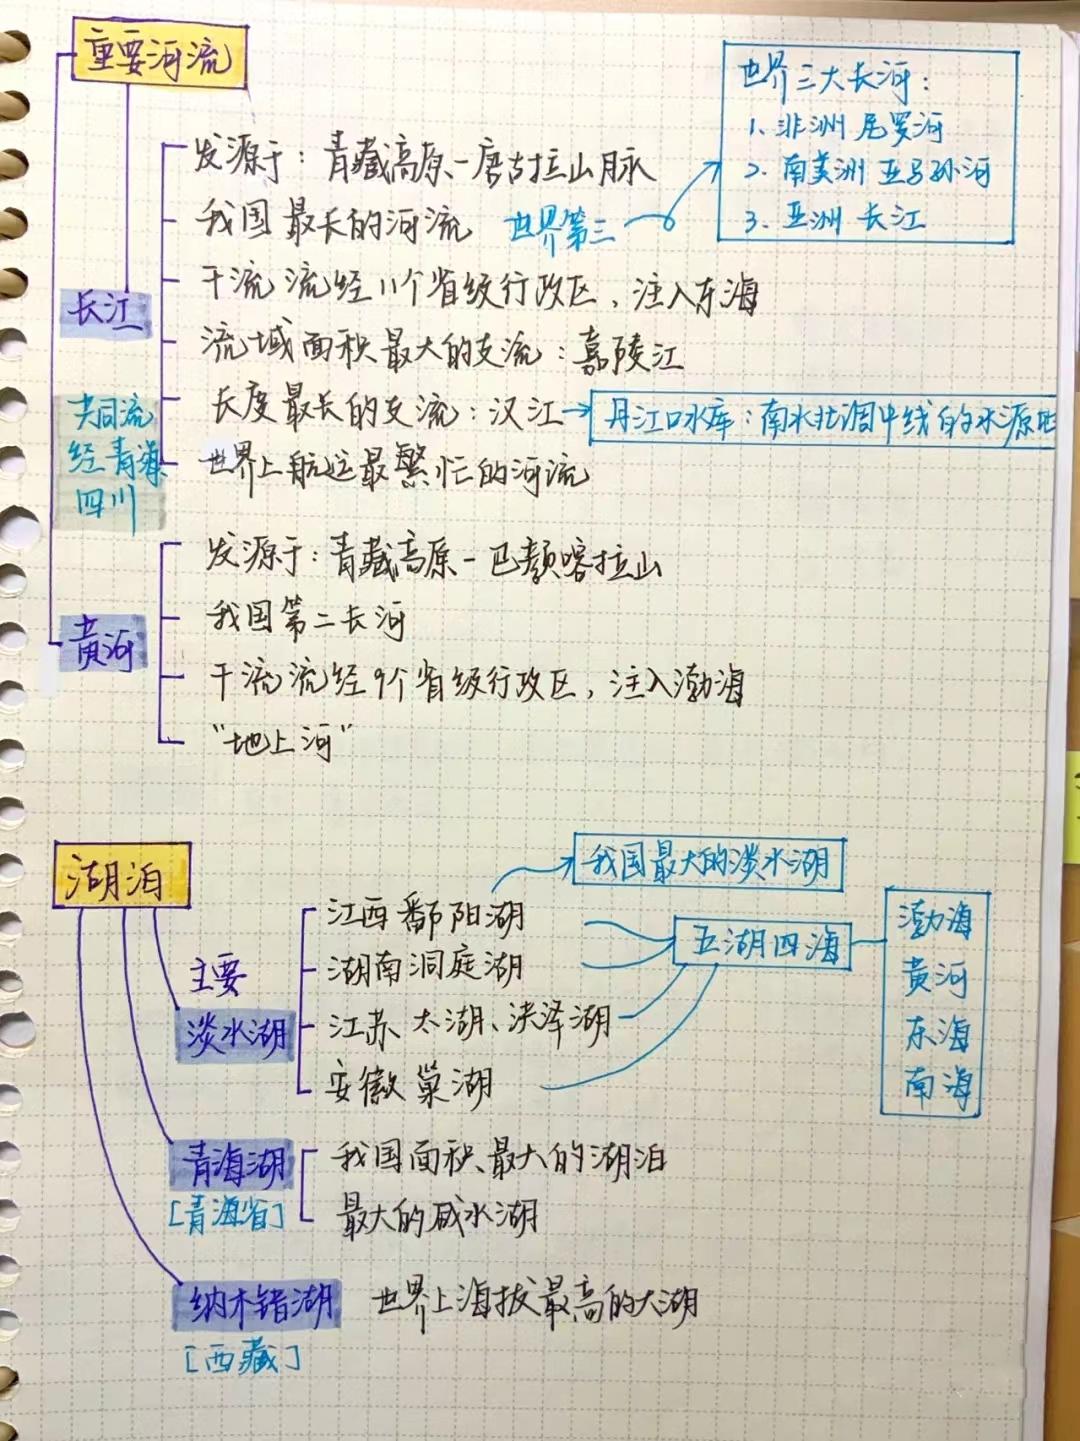 重要河流
世界三大长河：
1、非洲 尼罗河
2、南美洲 亚马孙河
3、亚洲 长江
长江
发源于：青藏高原－唐古拉山脉
我国最长的河流 世界第三
干流 流经11个省级行政区，注入东海
流域面积最大的支流：嘉陵江
长度最长的支流：汉江→丹江口水库：南水北调中线的水源地
世界上航运最繁忙的河流
共同流
经青海
四川
黄河
发源于：青藏高原－巴颜喀拉山
我国第二长河
干流流经9个省级行政区，注入渤海
“地上河”
湖泊
我国最大的淡水湖
主要
淡水湖
江西 鄱阳湖
湖南洞庭湖
江苏 太湖、洪泽湖
安徽 巢湖
五湖四海
渤海
黄河
东海
南海
青海湖
[青海省]
我国面积最大的湖泊
最大的咸水湖
纳木错湖 世界上海拔最高的大湖
[西藏]